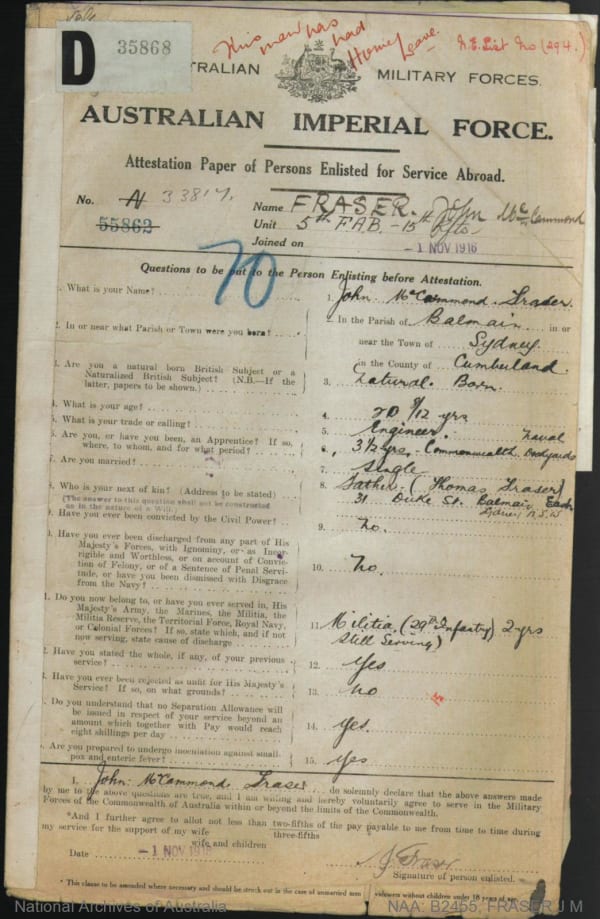 D
35868
This man has had Home Leave.
N.E. List No (294.)
TRALIAN MILITARY FORCES.
AUSTRALIAN IMPERIAL FORCE.
Attestation Paper of Persons Enlisted for Service Abroad.
No. N 33817.
55862
Name FRASER. John McCammond
Unit 5th F.A.B. - 15th Rfts
Joined on - 1 NOV 1916
70
Questions to be put to the Person Enlisting before Attestation.
1. What is your Name?
1. John McCammond Fraser
2. In or near what Parish or Town were you born?
2. In the Parish of Balmain in or
near the Town of Sydney
in the County of Cumberland.
3. Are you a natural born British Subject or a
Naturalized British Subject? (N.B.—If the
latter, papers to be shown.)
3. Natural Born.
4. What is your age?
4. 20 8/12 yrs
5. What is your trade or calling?
5. Engineer.
6. Are you, or have you been, an Apprentice? If so,
where, to whom, and for what period?
6. 3½ yrs. Commonwealth Naval Dockyards
7. Are you married?
7. Single
8. Who is your next of kin? (Address to be stated)
(The answer to this question shall not be construed
as in the nature of a Will.)
8. Father: (Thomas Fraser)
31 Duke St. Balmain East
Sydney N.S.W
9. Have you ever been convicted by the Civil Power?
9. No.
10. Have you ever been discharged from any part of His
Majesty's Forces, with Ignominy, or as Incor-
rigible and Worthless, or on account of Convic-
tion of Felony, or of a Sentence of Penal Servi-
tude, or have you been dismissed with Disgrace
from the Navy?
10. No.
1. Do you now belong to, or have you ever served in, His
Majesty's Army, the Marines, the Militia, the
Militia Reserve, the Territorial Force, Royal Navy,
or Colonial Forces? If so, state which, and if not
now serving, state cause of discharge
11. Militia. (29th Infantry) 2 yrs
Still Serving)
2. Have you stated the whole, if any, of your previous
service?
12. Yes
3. Have you ever been rejected as unfit for His Majesty's
Service? If so, on what grounds?
13. No
Do you understand that no Separation Allowance will
be issued in respect of your service beyond an
amount which together with Pay would reach
eight shillings per day
14. Yes.
Are you prepared to undergo inoculation against small-
pox and enteric fever?
15. Yes
I, John McCammond Fraser do solemnly declare that the above answers made
by me to the above questions are true, and I am willing and hereby voluntarily agree to serve in the Military
Forces of the Commonwealth of Australia within or beyond the limits of the Commonwealth.
*And I further agree to allot not less than two-fifths of the pay payable to me from time to time during
three-fifths
my service for the support of my wife
wife and children
Date - 1 NOV 1916
J. Fraser
Signature of person enlisted.
* This clause to be amended where necessary and should be struck out in the case of unmarried men widowers without children under 18 years of age.
National Archives of Australia
NAA: B2455, FRASER J M